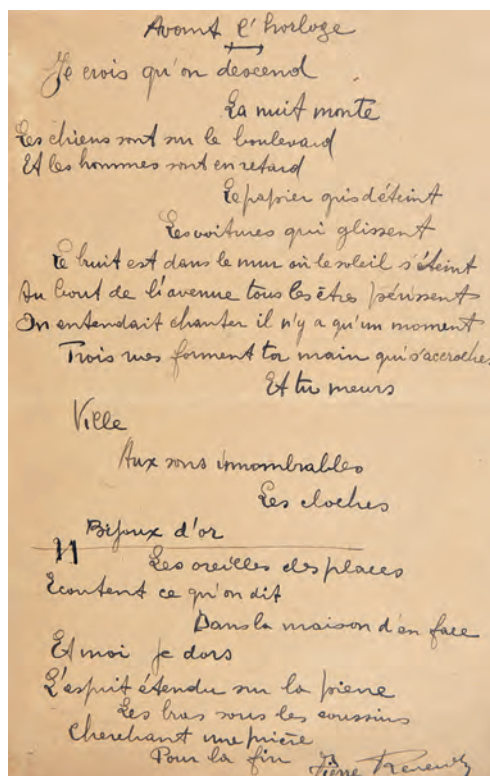 Avant l'horloge
Je crois qu'on descend
La nuit monte
Les chiens sont sur le boulevard
Et les hommes sont en retard
Le papier gris déteint
Les voitures qui glissent
Le bruit est dans le mur où le soleil s'éteint
Au bout de l'avenue tous les êtres périssent
On entendait chanter il n'y a qu'un moment
Trois rues forment ta main qui s'accroche
Et tu meurs
Ville
Aux sons innombrables
Les cloches
Bijoux d'or
Les oreilles des places
Ecoutent ce qu'on dit
Dans la maison d'en face
Et moi je dors
L'esprit étendu sur la pierre
Les bras sous les coussins
Cherchant une prière
Pour la fin Pierre Reverdy